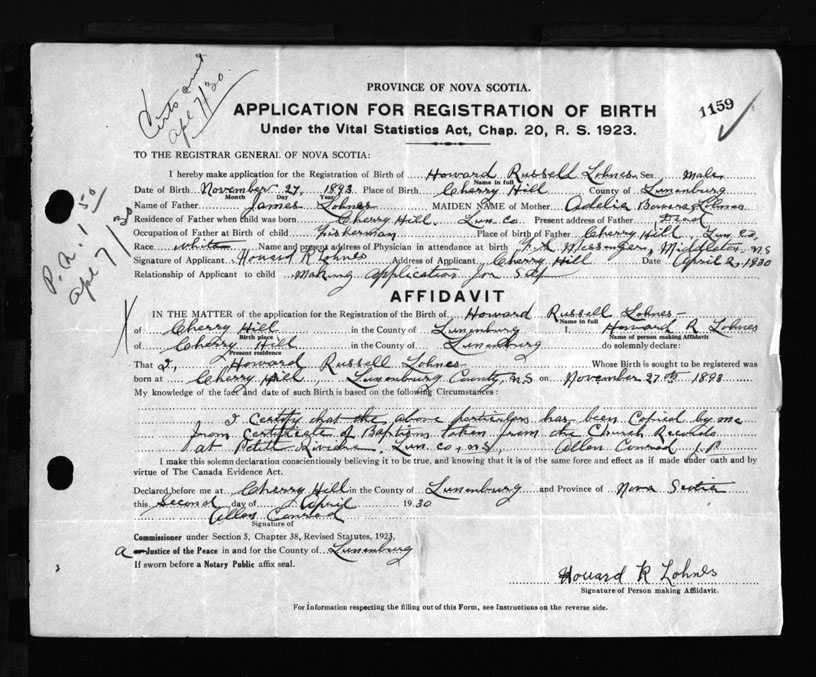 Certs sent
Apl 7/30.
P.N. 1 50
Apl 7/30
PROVINCE OF NOVA SCOTIA.
1159
APPLICATION FOR REGISTRATION OF BIRTH
Under the Vital Statistics Act, Chap. 20, R. S. 1923.
TO THE REGISTRAR GENERAL OF NOVA SCOTIA:
I hereby make application for the Registration of Birth of Howard Russell Lohnes Sex Male
Name in full
Date of Birth November 27, 1893 Place of Birth Cherry Hill County of Lunenburg
Month Day Year
Name of Father James Lohnes MAIDEN NAME of Mother Adelia Bowers Lohnes
Residence of Father when child was born Cherry Hill. Lun. Co. Present address of Father Dead
Occupation of Father at Birth of child Fisherman Place of birth of Father Cherry Hill, Lun. Co,
Race white Name and present address of Physician in attendance at birth Messenger, Middleton. N.S
Signature of Applicant Howard R Lohnes Address of Applicant Cherry Hill Date April 2, 1930
Relationship of Applicant to child making application for Self
AFFIDAVIT
IN THE MATTER of the application for the Registration of the Birth of Howard Russell Lohnes
Name in full
of Cherry Hill in the County of Lunenburg I, Howard R Lohnes
Birth place Name of person making Affidavit
of Cherry Hill in the County of Lunenburg do solemnly declare:
Present residence
That I, Howard Russell Lohnes Whose Birth is sought to be registered was
born at Cherry Hill, Lunenburg County, N.S on November 27th 1893
My knowledge of the fact and date of such Birth is based on the following Circumstances:
I certify that the above particulars has been Copied by me
from Certificate of Baptism taken from the Church Records
at Petite Riviere, Lun. Co, N.S, Allen Conrad J.P
I make this solemn declaration conscientiously believing it to be true, and knowing that it is of the same force and effect as if made under oath and by
virtue of The Canada Evidence Act.
Declared before me at Cherry Hill in the County of Lunenburg and Province of Nova Scotia
this Second day of April 1930
Allen Conrad
Signature of
Commissioner under Section 5, Chapter 38, Revised Statutes, 1923,
a or Justice of the Peace in and for the County of Lunenburg
If sworn before a Notary Public affix seal.
Howard R Lohnes
Signature of Person making Affidavit.
For Information respecting the filling out of this Form, see Instructions on the reverse side.